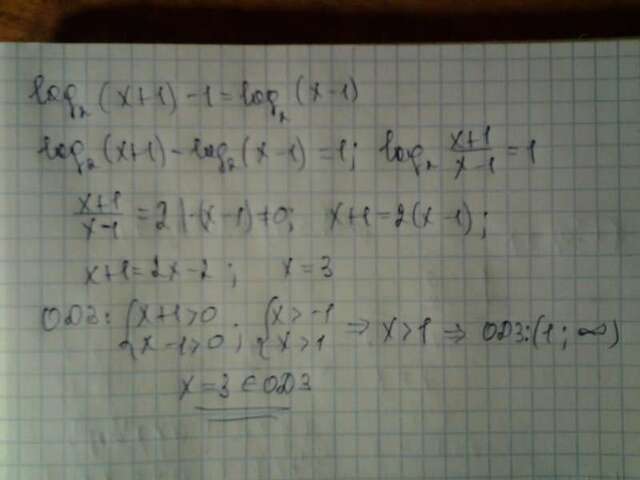 log₂(x+1)-1=log₂(x-1)
log₂(x+1)-log₂(x-1)=1; log₂ (x+1)/(x-1)=1
(x+1)/(x-1)=2 |·(x-1)≠0; x+1=2(x-1);
x+1=2x-2; x=3
ОДЗ: {x+1>0 ; {x>-1 ⇒ x>1 ⇒ ОДЗ:(1; ∞)
{x-1>0 {x>1
x=3∈ОДЗ